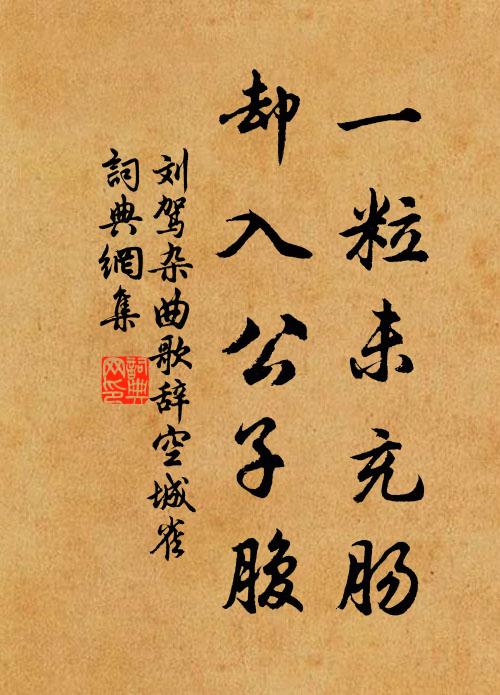 一粒未充肠
却入公子腹
刘驾杂曲歌辞空城雀
詞典網集
詞典网印